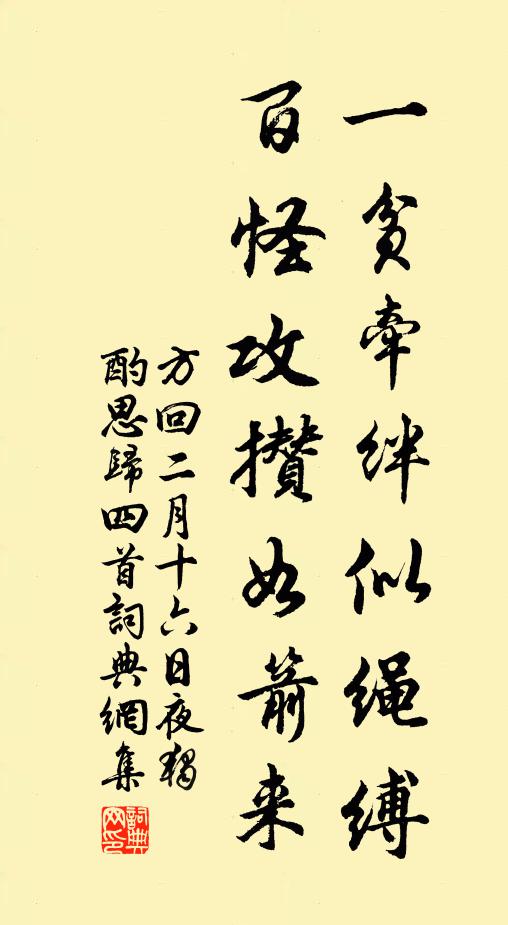 一贫牵绊似绳缚
百怪攻攒如箭来
方回二月十六日夜獨
酌思歸四首詞典網集
詞典網印